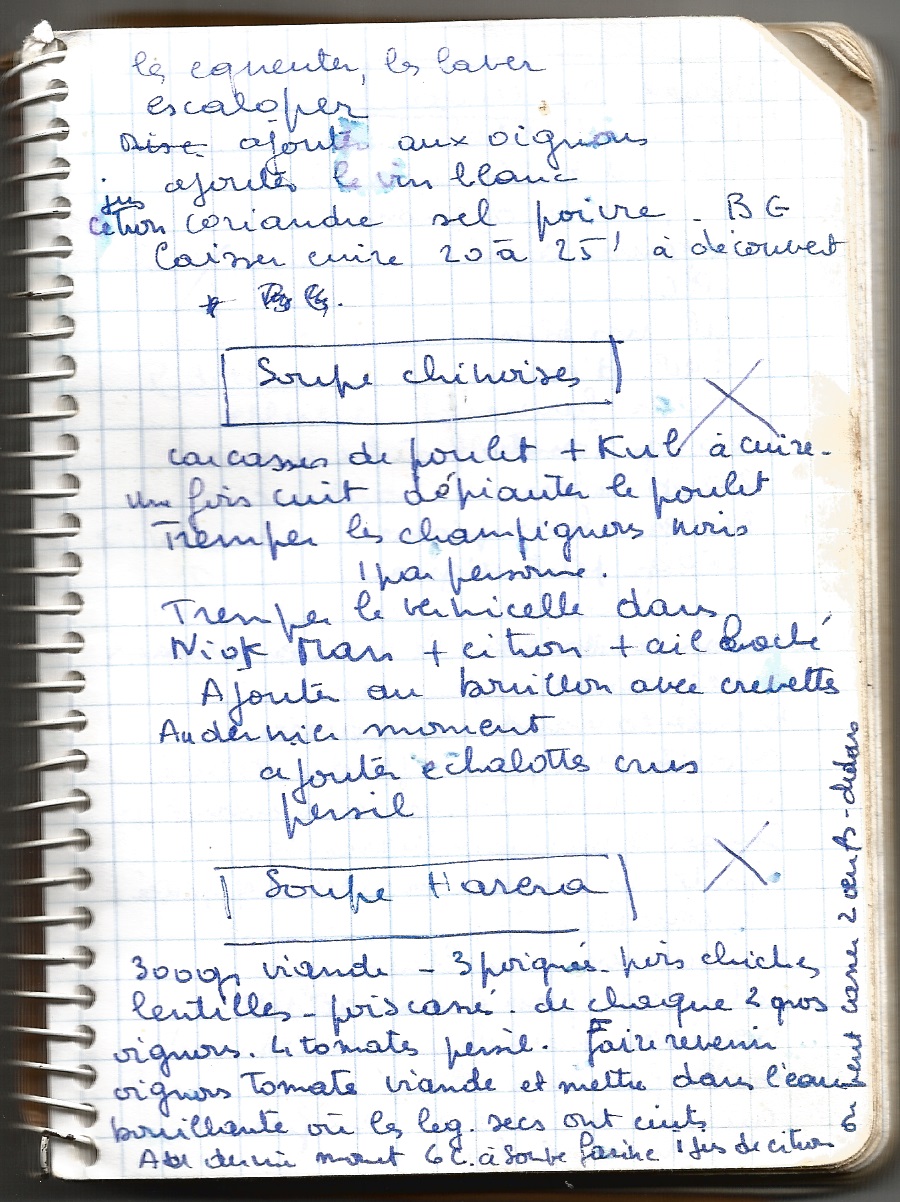 les equeuter, les laver
escaloper
Dire ajouter aux oignons
ajouter le vin blanc
jus
citron coriandre sel poivre - BG
Laisser cuire 20 à 25' à découvert
+ BG.
Soupe chinoises
carcasses de poulet + Kub à cuire.
une fois cuit dépiauter le poulet
Tremper les champignons noirs
1 par personne.
Tremper le vermicelle dans
Niok Man + citron + ail haché
Ajouter au bouillon avec crevettes
Au dernier moment
ajouter echalottes crues
persil
Soupe Harera
300 gr viande - 3 poignées pois chiches
lentilles - pois cassé. de chaque 2 gros
oignons. 4 tomates persil. Faire revenir
oignons tomate viande et mettre dans l'eau
bouillante où les leg. secs ont cuits
Au dernier moment 6 c. à soupe farine 1 jus de citron
on peut casser 2 oeufs - dedans